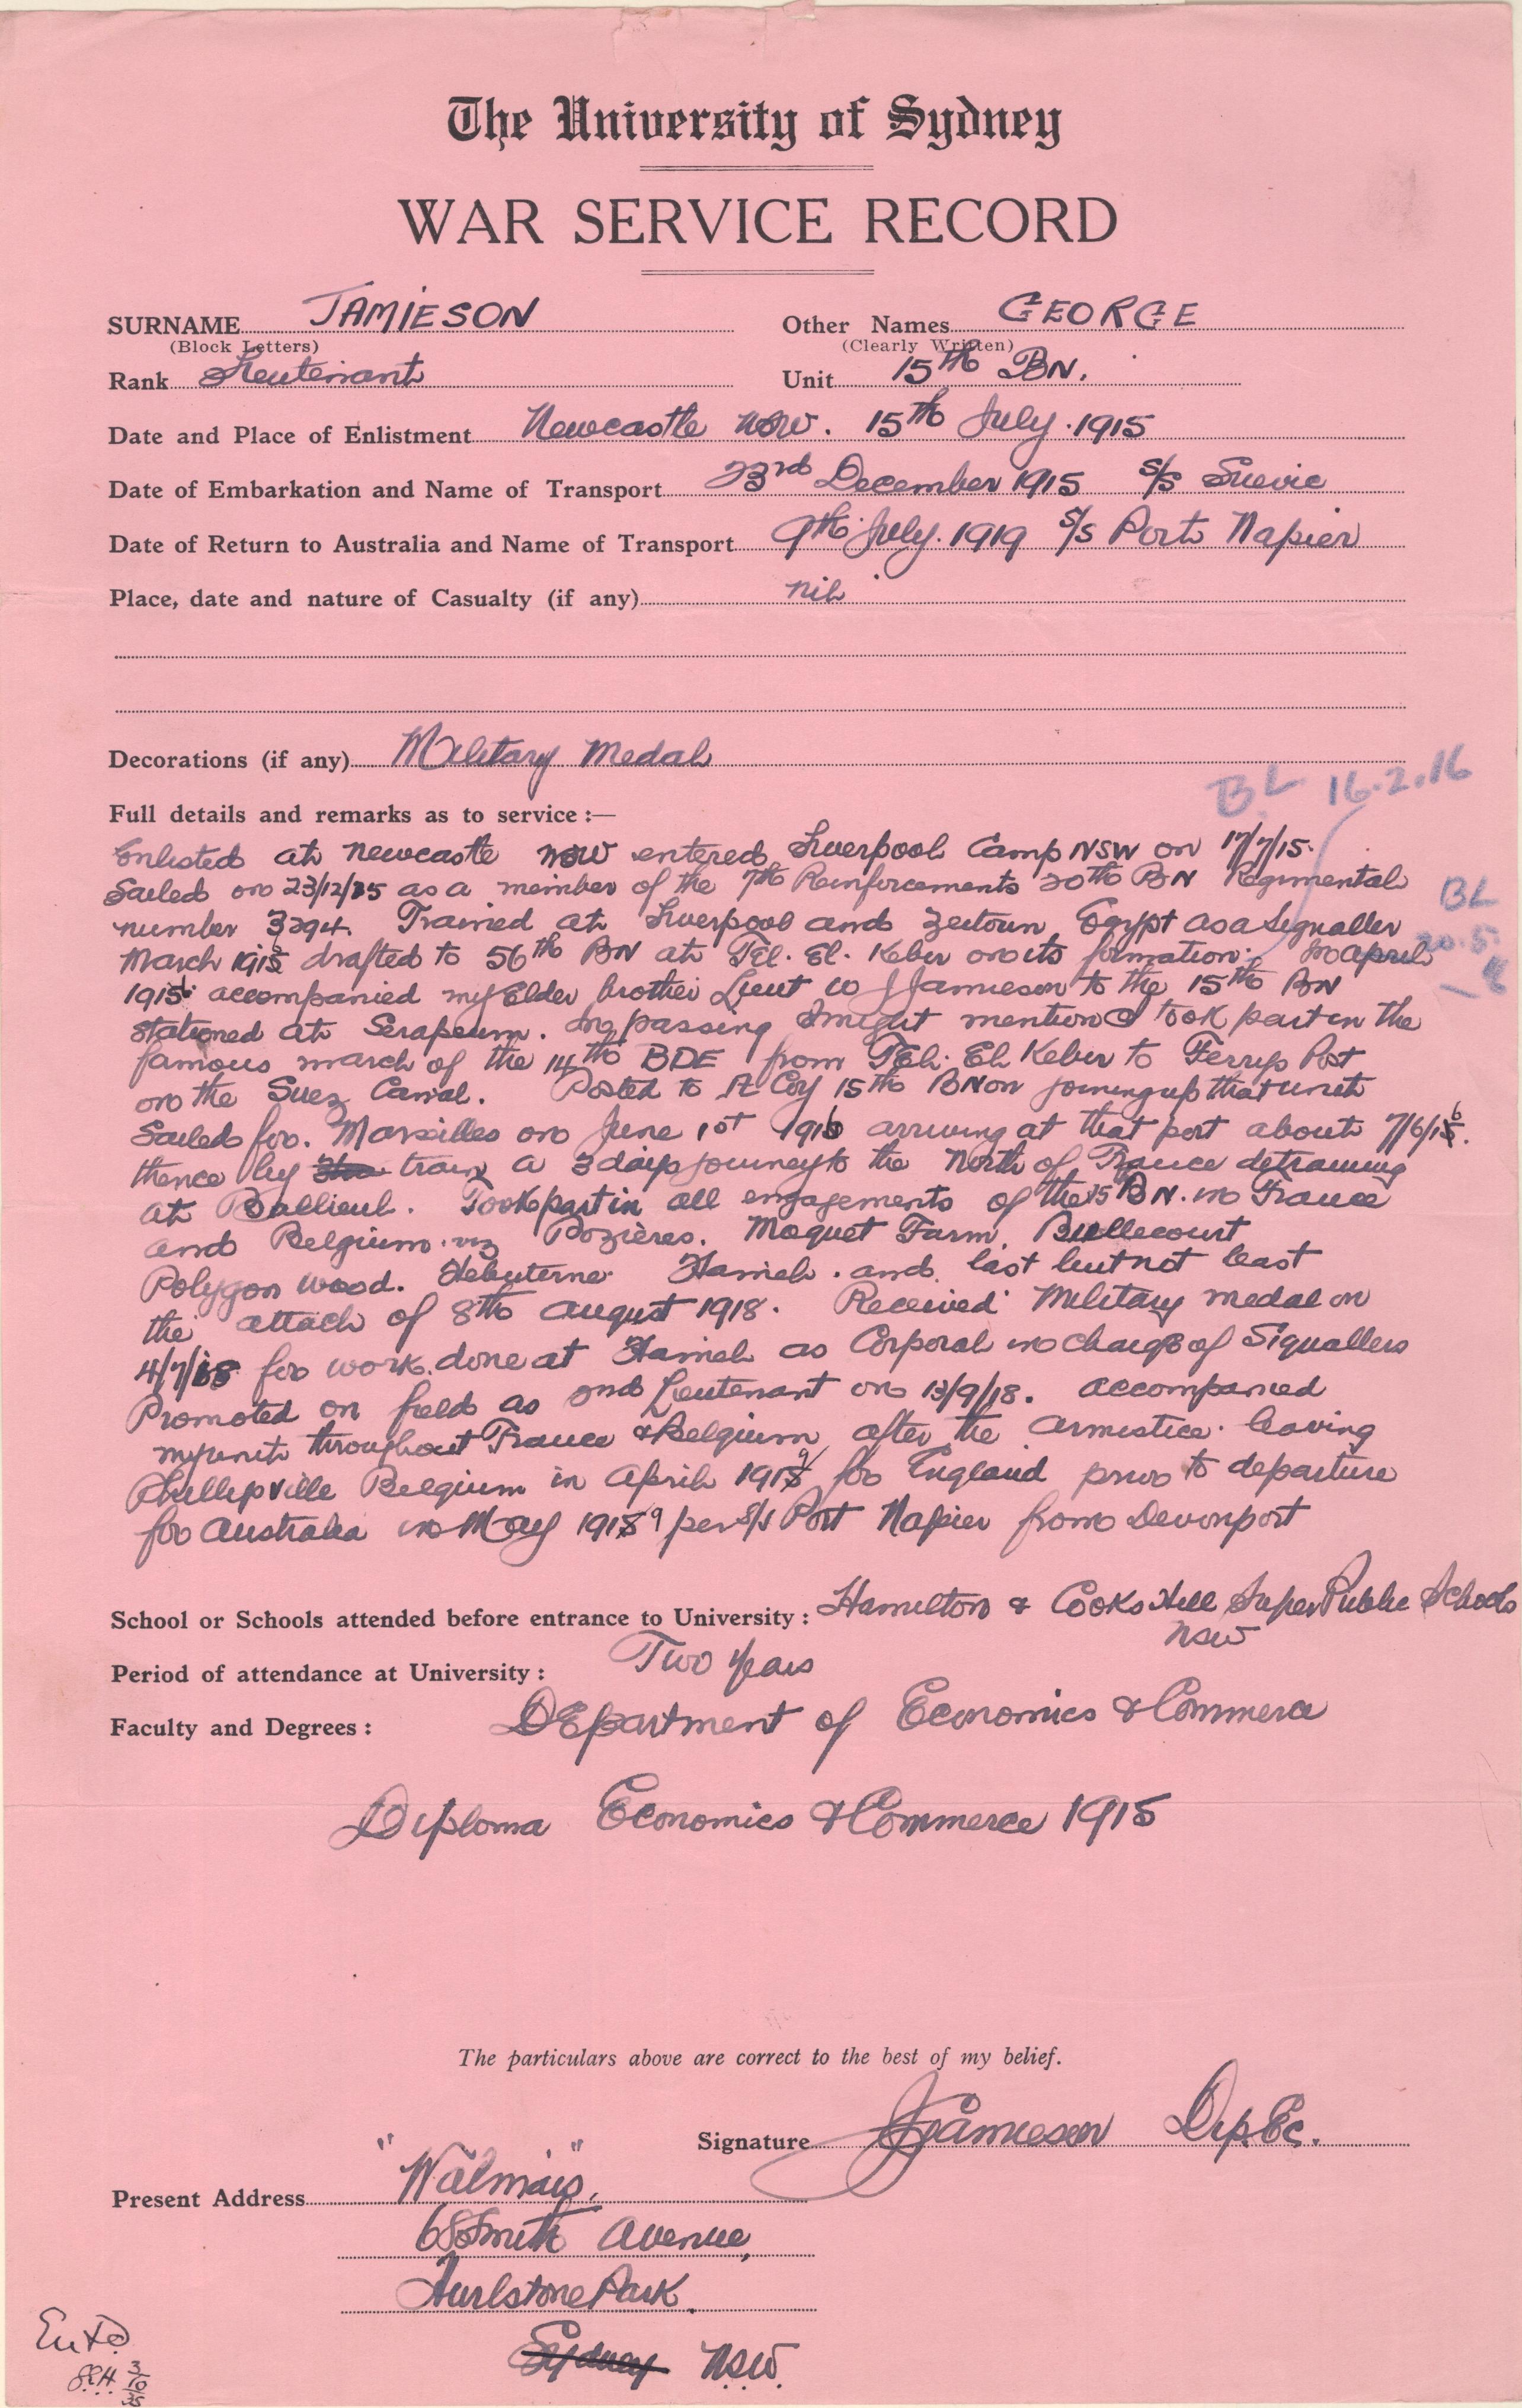 The University of Sydney
WAR SERVICE RECORD
SURNAME JAMIESON Other Names GEORGE
(Block Letters) (Clearly Written)
Rank Lieutenant Unit 15th BN.
Date and Place of Enlistment Newcastle NSW. 15th July. 1915
Date of Embarkation and Name of Transport 23rd December 1915 S/S Suevic
Date of Return to Australia and Name of Transport 9th July. 1919 S/S Port Napier
Place, date and nature of Casualty (if any) nil
Decorations (if any) Military Medal
BL 16.2.16
Full details and remarks as to service :—
Enlisted at Newcastle NSW entered Liverpool Camp NSW on 17/7/15.
Sailed on 23/12/15 as a member of the 7th Reinforcements 20th BN Regimental
BL
number 3294. Trained at Liverpool and Zeitoun Egypt as a Signaller
20.5.
March 1916 drafted to 56th BN at Tel. El. Keber on its formation. In April
16
1916 accompanied my Elder brother Lieut W J Jamieson to the 15th BN
stationed at Serapeum. In passing I might mention I took part in the
famous march of the 14th BDE from Tel. El Keber to Ferrys Post
on the Suez Canal. Posted to A Coy 15th BN on joining up that unit
Sailed for. Marseilles on June 1st 1916 arriving at that port about 7/6/16.
thence by train a 3 days journey to the North of France detraining
at Ballieul. Took part in all engagements of the 15 BN. in France
and Belgium. viz Pozières. Moquet Farm. Bullecourt
Polygon Wood. Hebuterne. Hamel. and last but not least
the attack of 8th August 1918. Received Military Medal on
4/7/18 for work done at Hamel as Corporal in charge of Signallers
Promoted on field as 2nd Lieutenant on 13/9/18. accompanied
my unit throughout France & Belgium after the Armistice. leaving
Phillipville Belgium in April 1919 for England prior to departure
for Australia in May 1919 per S/S Port Napier from Devonport
School or Schools attended before entrance to University : Hamilton & Cooks Hill Super Public Schools
NSW
Period of attendance at University : Two years
Faculty and Degrees : Department of Economics & Commerce
Diploma Economics & Commerce 1915
The particulars above are correct to the best of my belief.
Signature GJamieson Dip.Ec.
Present Address "Walmais",
68 Smith Avenue,
Hurlstone Park.
Sydney NSW.
Entd.
S.E.H. 3/10/35